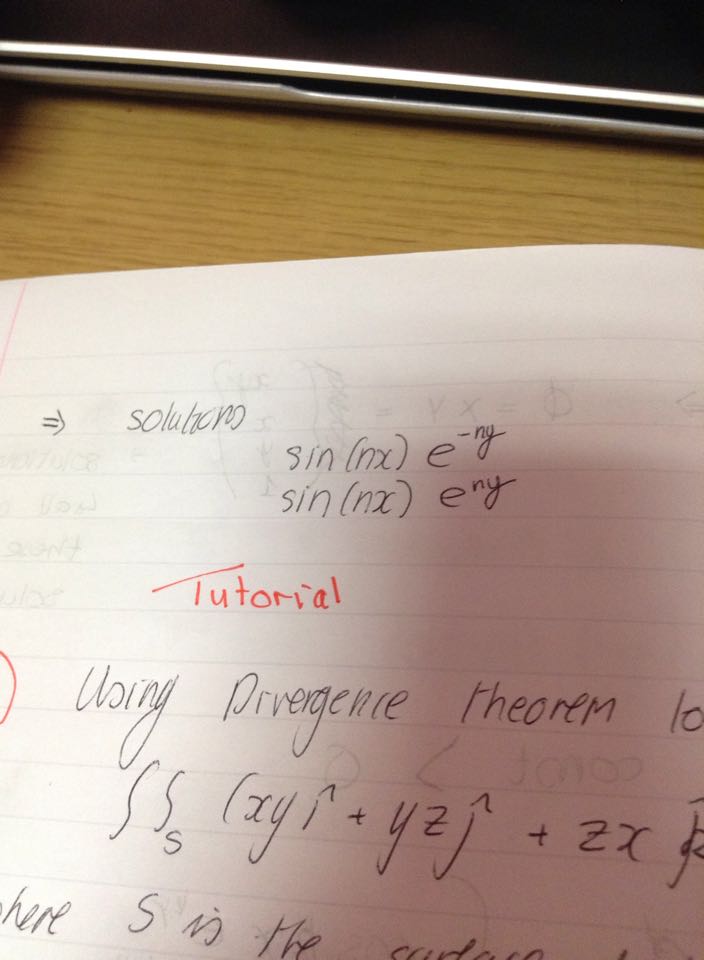 ⇒ solutions
sin(nx) e^-ny
sin(nx) e^ny
Tutorial
) Using Divergence theorem to
∫∫_S (xy î + yz ĵ + zx k̂
where S is the surface